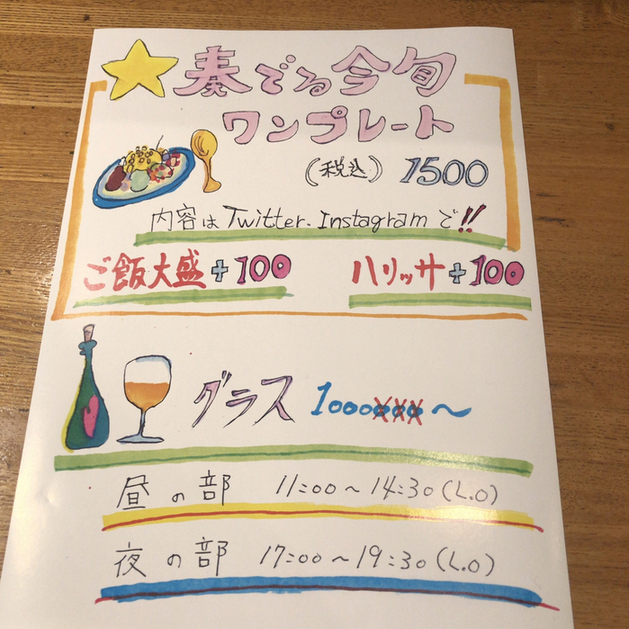 奏でる今旬
ワンプレート
(税込) 1500
内容は Twitter. Instagram で!!
ご飯大盛+100 ハリッサ+100
グラス 1000000~
昼の部 11:00~14:30(L.O)
夜の部 17:00~19:30(L.O)